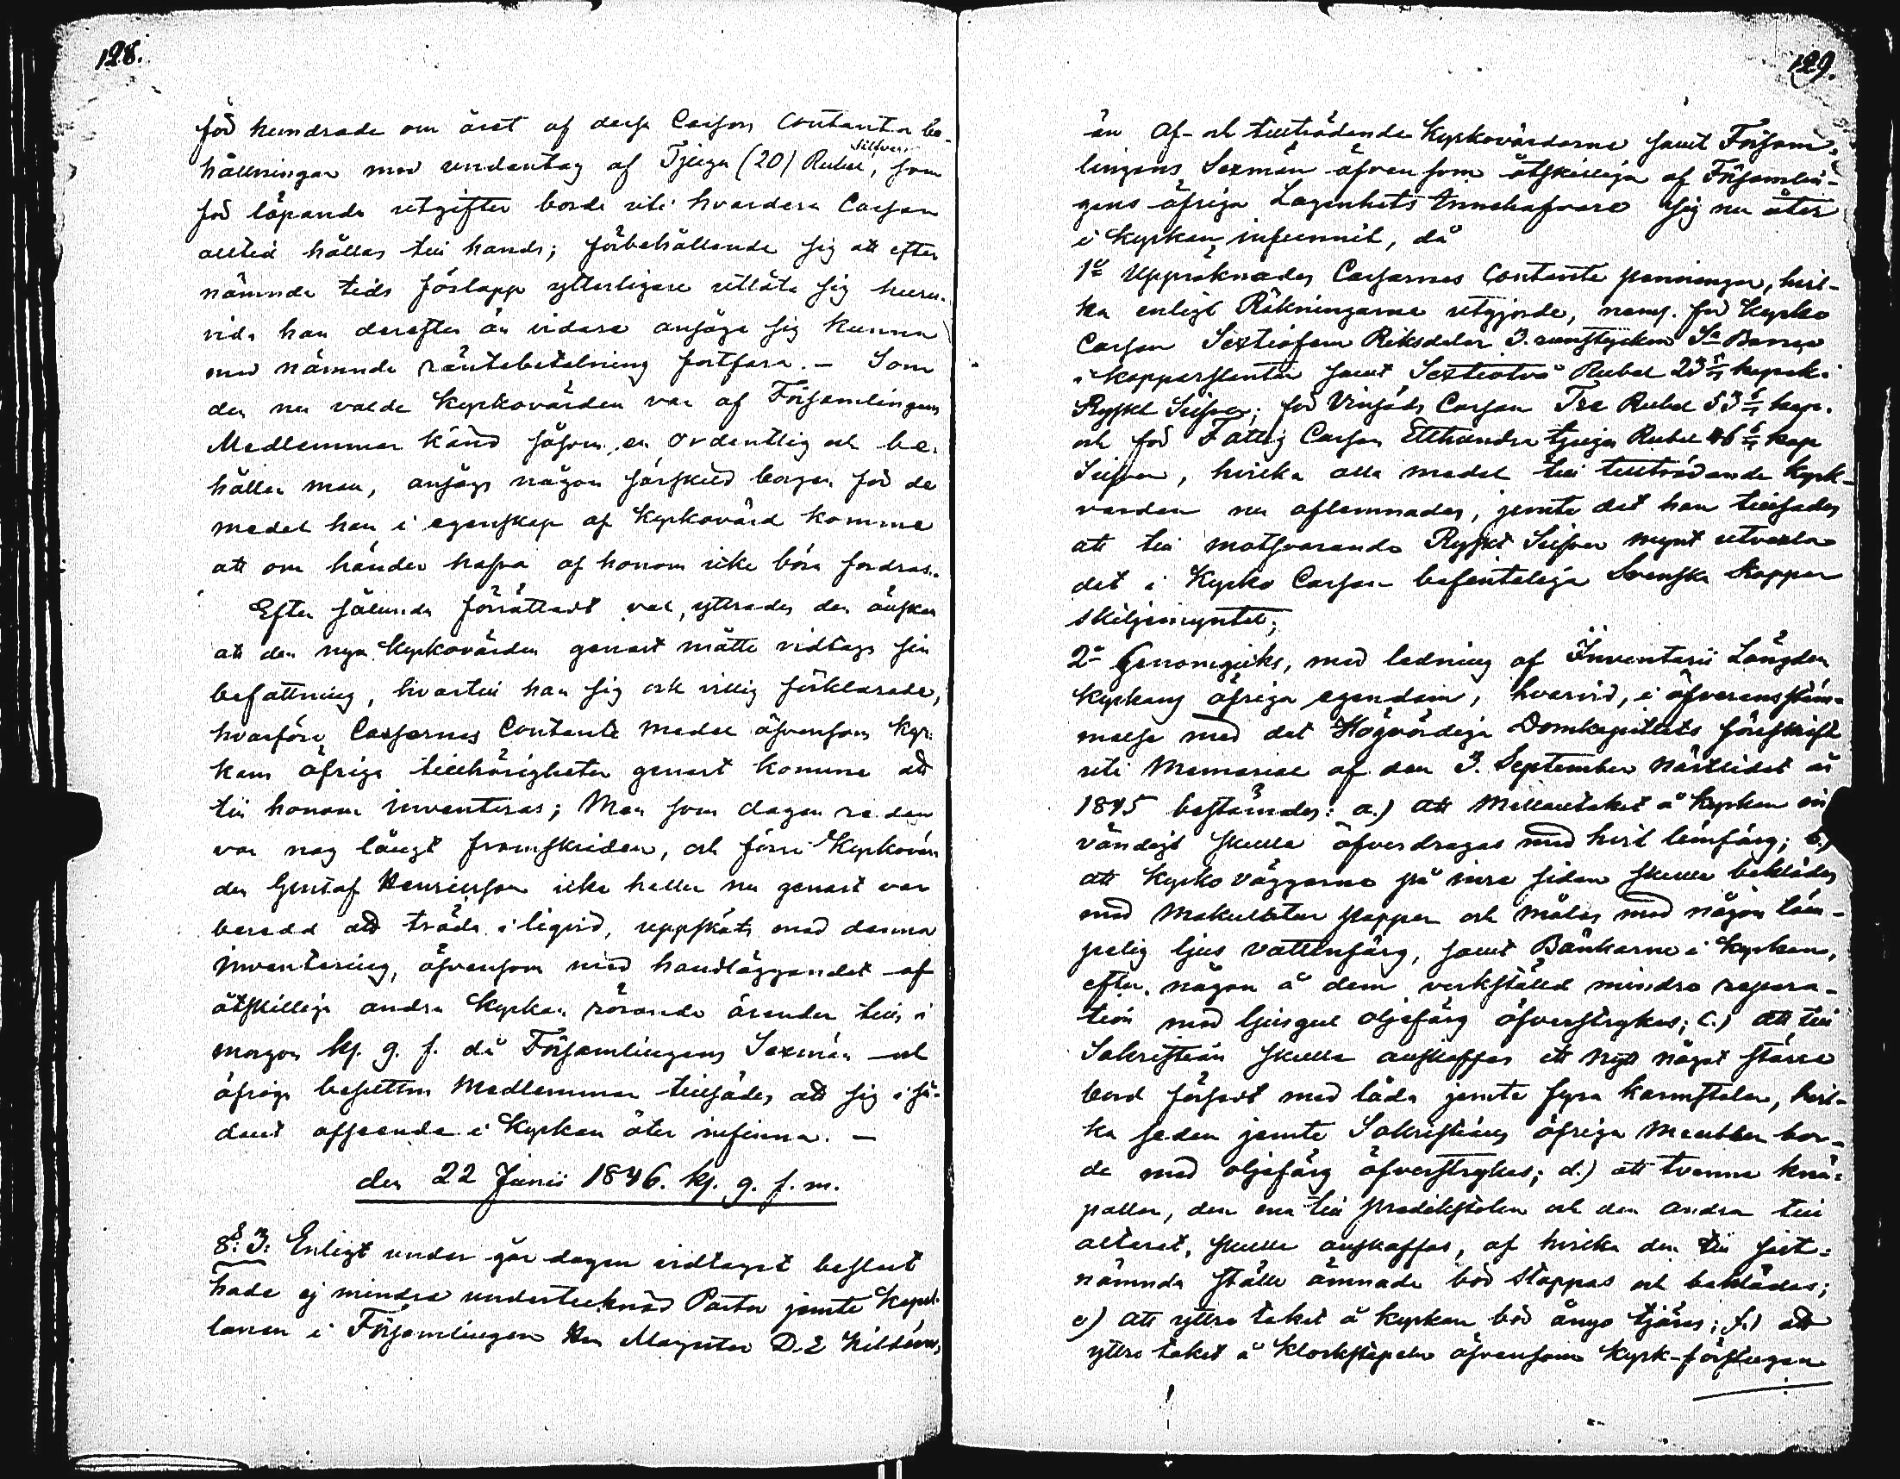 128.
för hundrade om året af dessa Cassors Contanta be-
hållningar med undantag af Tjugu (20) Rubel Silfver, som
för löpande utgifter borde uti hvardera Cassan
alltid hållas till hands; förbehållande sig att efter
nämnde tids förlopp ytterligare utlåta sig huru-
vida han derefter än vidare ansåge sig kunna
med nämnde räntebetalning fortfara. — Som
den nu valde Kyrkovärden var af Församlingens
Medlemmar känd såsom en ordentlig och be-
hållen man, ansågs någon särskild borgen för de
medel han i egenskap af Kyrkovärd komme
att om händer hafva af honom icke böra fordras.
Efter sålunda förrättadt val, yttrades den önskan
att den nya Kyrkovärden genast måtte vidtaga sin
befattning, hvartill han sig ock villig förklarade,
hvarföre Cassornes Contante medel äfvensom Kyr-
kans öfriga tillhörigheter genast komme att
till honom inventeras; Men som dagen redan
var nog långt framskriden, och förre Kyrkovär-
den Gustaf Henricsson icke heller nu genast var
beredd att träda i liqvid, uppsköts med denna
inventering, äfvensom med handläggandet af
åtskilliga andra Kyrkan rörande ärender till i
morgon kl. 9. f. då Församlingens Sexmän och
öfriga besuttna Medlemmar tillsades att sig i så-
dant afseende i Kyrkan åter infinna. —
den 22 Junii 1846. kl. 9. f. m.
§: 3: Enligt under går dagen vidtaget beslut
hade ej mindre undertecknad Pastor jemte Kapel-
lanen i Församlingen Herr Magister D. E.
129.
än af- och tillträdande Kyrkovärdarne samt Försam-
lingens Sexmän äfvensom åtskilliga af Församlin-
gens öfriga Lägenhets Innehafvare sig nu åter
i Kyrkan infunnit, då
1o Uppräknades Cassornes Contante penningar, hvil-
ka enligt Räkningarne utgjorde, neml. för Kyrko
Cassan Sextiofem Riksdaler 3. runstycken Sv. Banco
i kopparslantar samt Sextiotvå Rubel 23 kopek i
Ryskt Silfver; för Vinsäds Cassan Tre Rubel 53 kop.
och för Fattig Cassan Etthundra tjugu Rubel 46 kop
Silfver, hvilka alla medel till tillträdande Kyrk-
värden nu aflemnades, jemte det han tillsades
att till motsvarande Ryskt Silfver mynt utvexla
det i Kyrko Cassan befinteliga Svenska Koppar
skiljemyntet;
2o Genomgicks, med ledning af Inventarii Längden
Kyrkans öfriga egendom, hvarvid, i öfverensstäm-
melse med det Högvördiga Domkapitlets föreskrift
uti Memorial af den 3. September nästlidet år
1845 bestämdes: a.) att Mellantaket å Kyrkan in
vändigt skulle öfverdragas med hvit limfärg; b.)
att Kyrko väggarne på inre sidan skulle beklädas
med Makulatur papper och målas med någon läm-
pelig ljus vattenfärg, samt Bänkarne i Kyrkan,
efter någon å dem verkställd mindre repara-
tion med ljusgul oljefärg öfverstrykas; c.) att till
Sakristian skulle anskaffas ett nytt något större
bord försedt med låda jemte fyra karmstolar, hvil-
ka sedan jemte Sakristians öfriga Meubler bor-
de med oljefärg öfverstrykas; d.) att tvenne knä-
pallar, den ena till predikstolen och den andra till
altaret, skulle anskaffas, af hvilka den till sist-
nämnda ställe ämnade bör stoppas och beklädas;
e) att yttre taket å kyrkan bör ånyo tjäras; f.) att
yttre taket å klockstapeln äfvensom Kyrk-förstugan